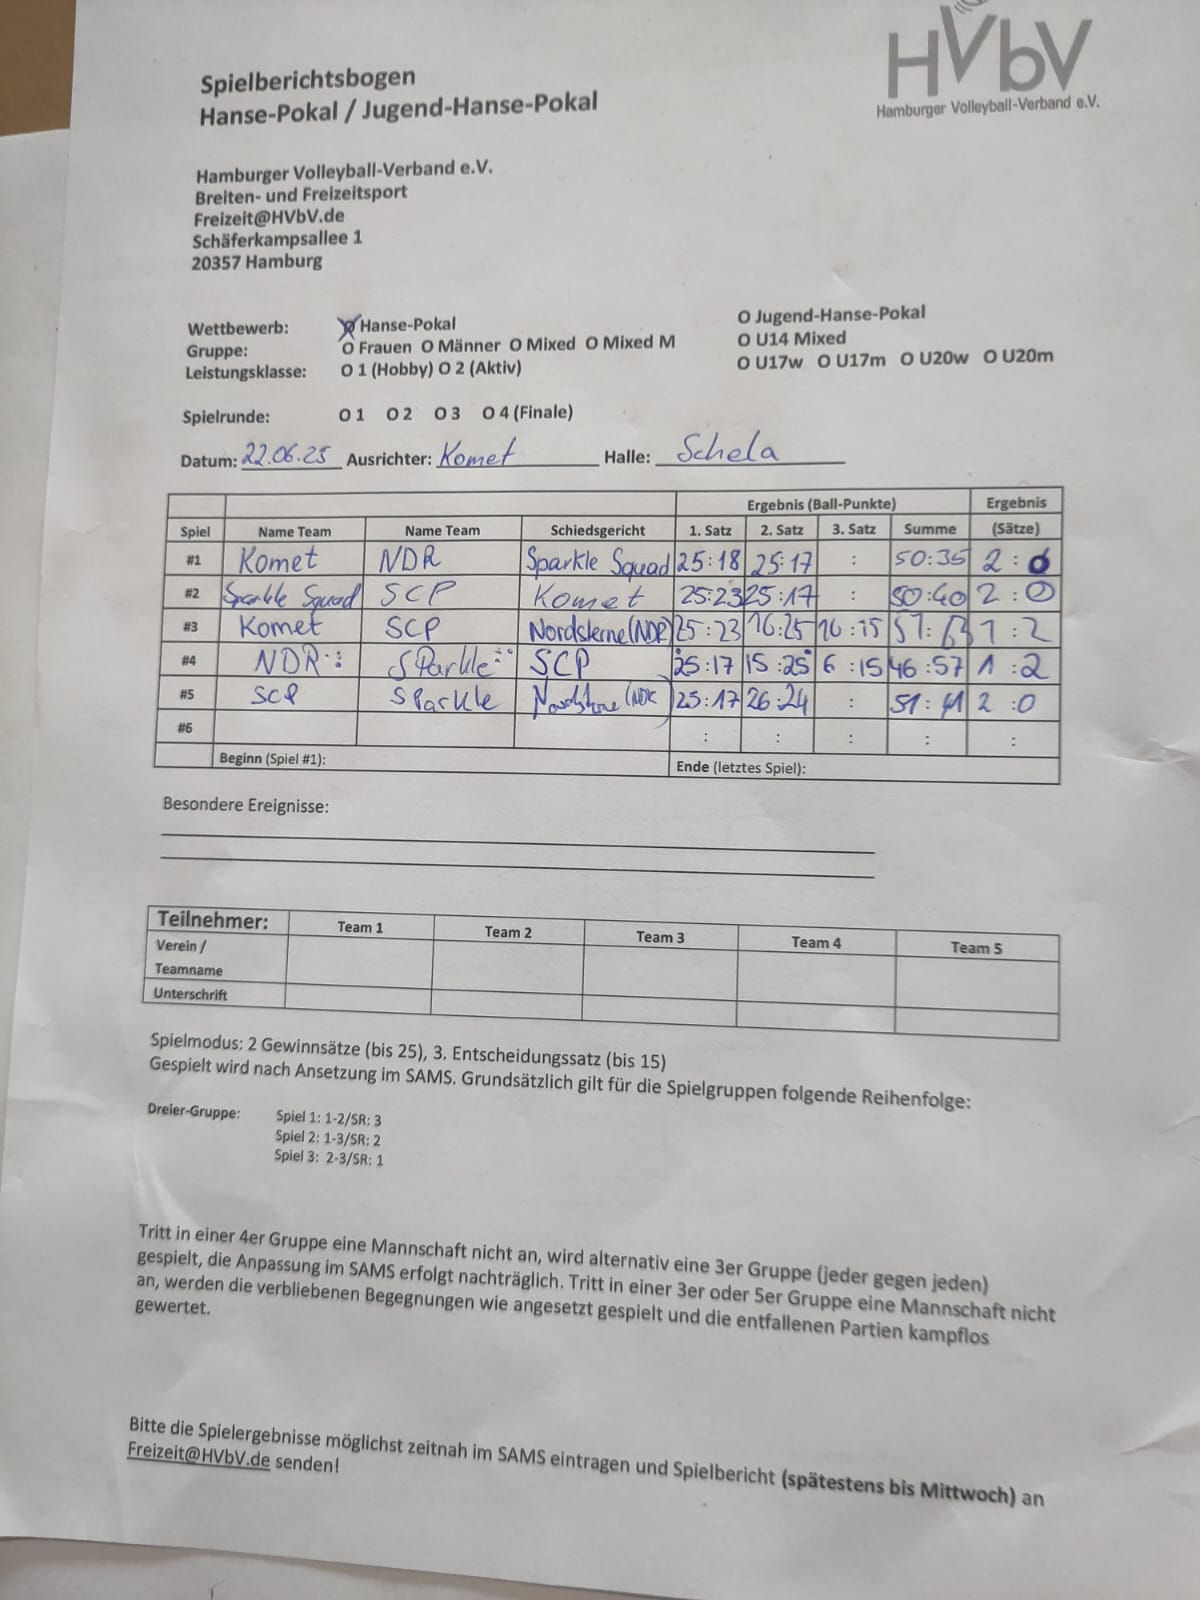 HVbV
Hamburger Volleyball-Verband e.V.
Spielberichtsbogen
Hanse-Pokal / Jugend-Hanse-Pokal
Hamburger Volleyball-Verband e.V.
Breiten- und Freizeitsport
Freizeit@HVbV.de
Schäferkampsallee 1
20357 Hamburg
Wettbewerb: Hanse-Pokal O Jugend-Hanse-Pokal
Gruppe: O Frauen O Männer O Mixed O Mixed M O U14 Mixed
Leistungsklasse: O 1 (Hobby) O 2 (Aktiv) O U17w O U17m O U20w O U20m
Spielrunde: O 1 O 2 O 3 O 4 (Finale)
Datum: 22.06.25 Ausrichter: Komet Halle: Schela
Ergebnis (Ball-Punkte) Ergebnis
Spiel Name Team Name Team Schiedsgericht 1. Satz 2. Satz 3. Satz Summe (Sätze)
#1 Komet NDR Sparkle Squad 25:18 25:17 : 50:35 2:0
#2 Sparkle Squad SCP Komet 25:23 25:17 : 50:40 2:0
#3 Komet SCP Nordsterne (NDR) 25:23 16:25 16:15 57:63 1:2
#4 NDR SParkle SCP 25:17 15:25 6:15 46:57 1:2
#5 SCP SParkle (NDR 25:17 26:24 : 51:41 2:0
#6 : : : : :
Beginn (Spiel #1): Ende (letztes Spiel):
Besondere Ereignisse:
Teilnehmer: Team 1 Team 2 Team 3 Team 4 Team 5
Verein /
Teamname
Unterschrift
Spielmodus: 2 Gewinnsätze (bis 25), 3. Entscheidungssatz (bis 15)
Gespielt wird nach Ansetzung im SAMS. Grundsätzlich gilt für die Spielgruppen folgende Reihenfolge:
Dreier-Gruppe: Spiel 1: 1-2/SR: 3
Spiel 2: 1-3/SR: 2
Spiel 3: 2-3/SR: 1
Tritt in einer 4er Gruppe eine Mannschaft nicht an, wird alternativ eine 3er Gruppe (jeder gegen jeden)
gespielt, die Anpassung im SAMS erfolgt nachträglich. Tritt in einer 3er oder 5er Gruppe eine Mannschaft nicht
an, werden die verbliebenen Begegnungen wie angesetzt gespielt und die entfallenen Partien kampflos
gewertet.
Bitte die Spielergebnisse möglichst zeitnah im SAMS eintragen und Spielbericht (spätestens bis Mittwoch) an
Freizeit@HVbV.de senden!